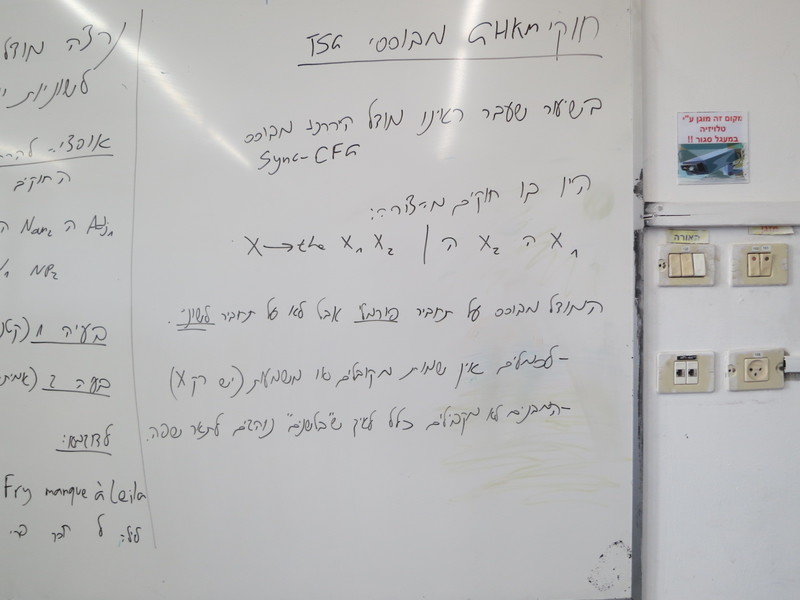 חוקי GHKM מבוססי TSG
בשיעור שעבר ראינו מודל היררכי מבוסס
Sync-CFG
היו בו חוקים מהצורה:
X → the X₁ X₂ | ה X₂ ה X₁
המודל מבוסס על תחביר פורמלי אבל לא על תחביר לשוני.
-לסמלים אין שמות מקובלים או משמעות (יש רק X)
-המבנים לא מקבילים כלל לאיך ש"בלשנים" נוהגים לתאר שפה.
נרצה מודל
לשוניות
אופציה
החוקים
ה Noun ה Adj₁
NP₂
בעיה 1 (קטנ
בעיה 2 (אמית
לדוגמה:
Fry manque à Leila
לילה ל
מקום זה מוגן ע"י
טלויזיה
במעגל סגור !!
תאורה